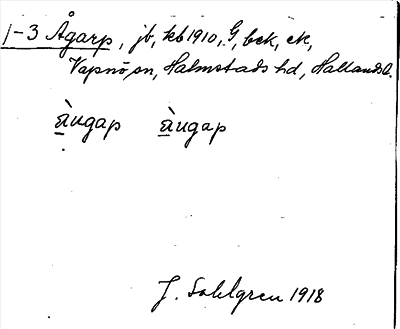 1-3 Ågarp, jb, kb 1910, G, bek, ek,
Vapnö sn, Halmstads hd, Hallands l.
àu̱gap àu̱gap
J. Sahlgren 1918